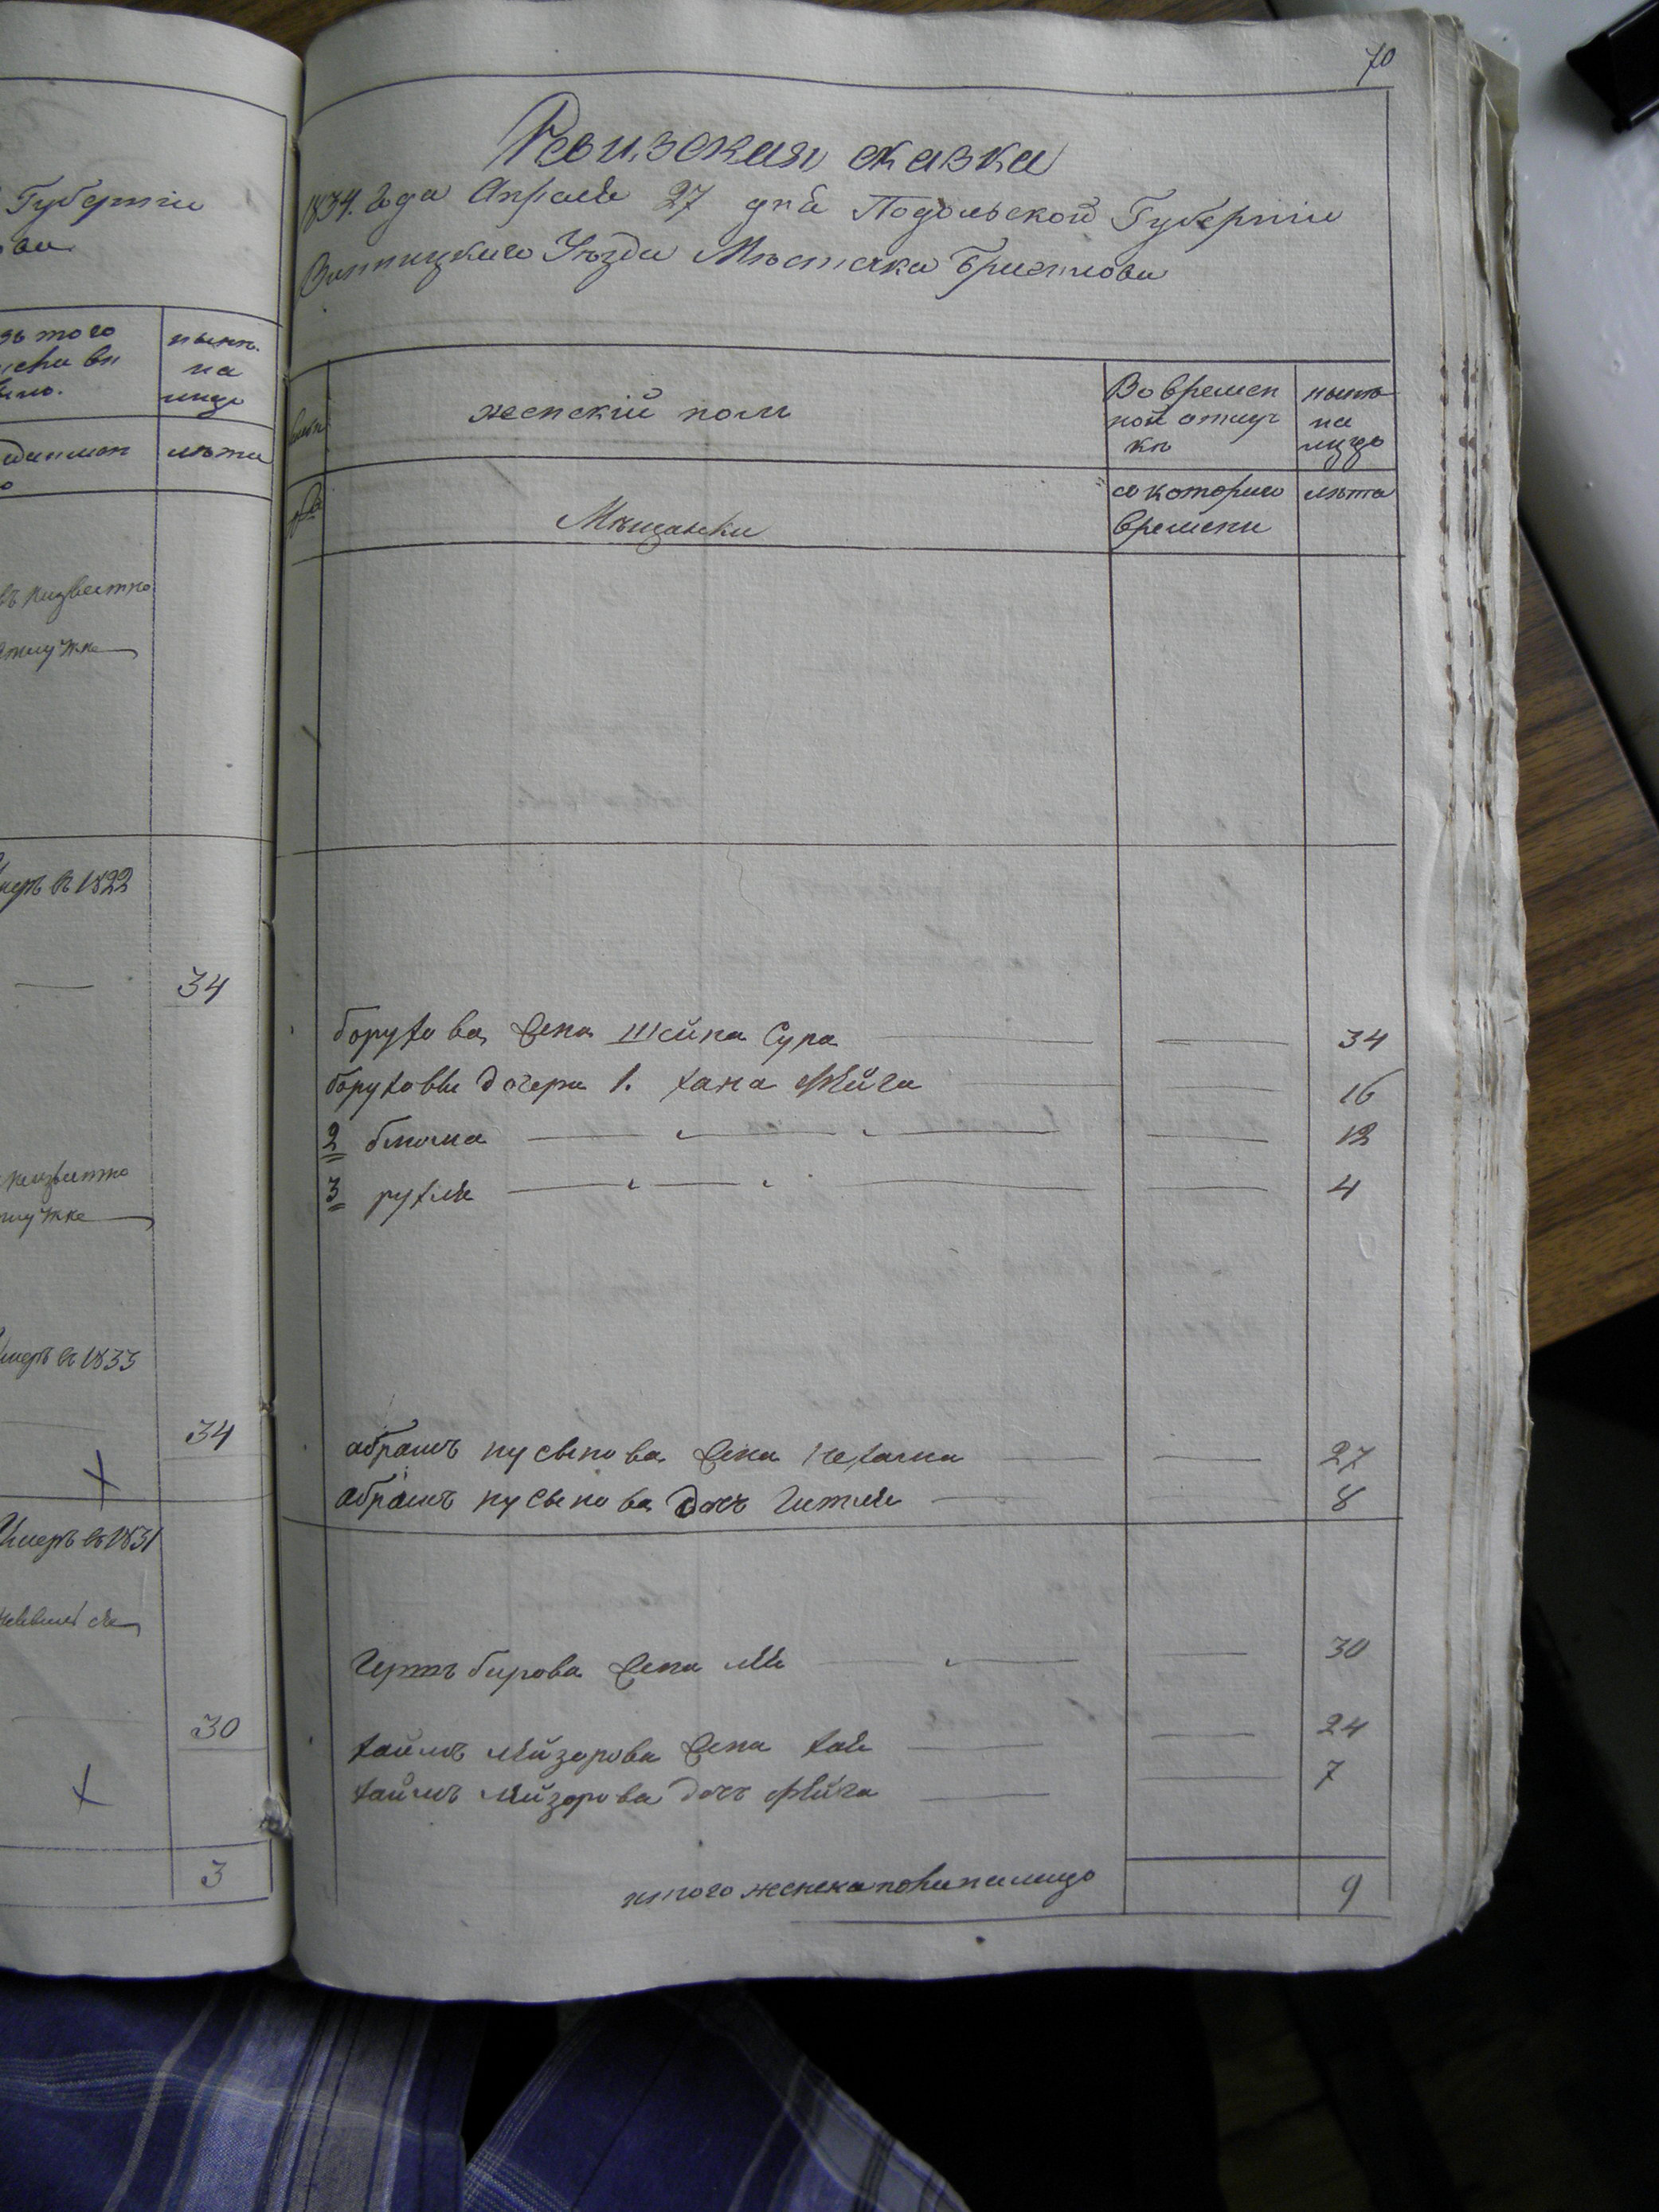 Губернии
ва
того
нынѣ
на
лицо
лѣта
неизвестно
отлучке
Умеръ въ 1822
34
неизвестно
отлучке
Умеръ въ 1833
34
Умеръ въ 1831
30
3
70
Ревизская сказка
1834. Года Апреля 27 дня Подольской Губерніи
Винницкаго Уѣзда Мѣстечка Браилова
женскій полъ
Во времен
ной отлуч
кѣ
нынѣ
на
лицо
Мѣщанки
съ котораго
времени
лѣта
борухова жена Шейна Сура 34
боруховы дочери 1. хана фейга 16
2 блюма 12
3 рухля 4
абрамъ нусынова жена нехама 27
абрамъ нусынова дочь Гитля 8
Герть берова жена лея 30
хаимъ лейзорова жена хая 24
хаимъ лейзорова дочь фейга 7
итого женска пола налицо 9